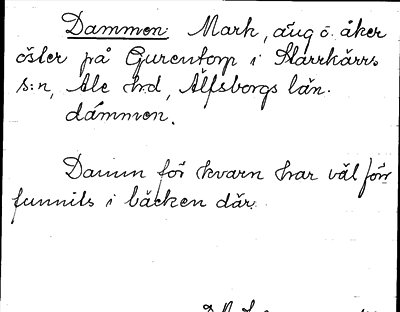 Dammen Mark, äng o. åker
öster på Gurentorp i Starrkärrs
s:n, Ale hrd, Älfsborgs län.
dámmen.
Damm för kvarn har väl förr
funnits i bäcken där.